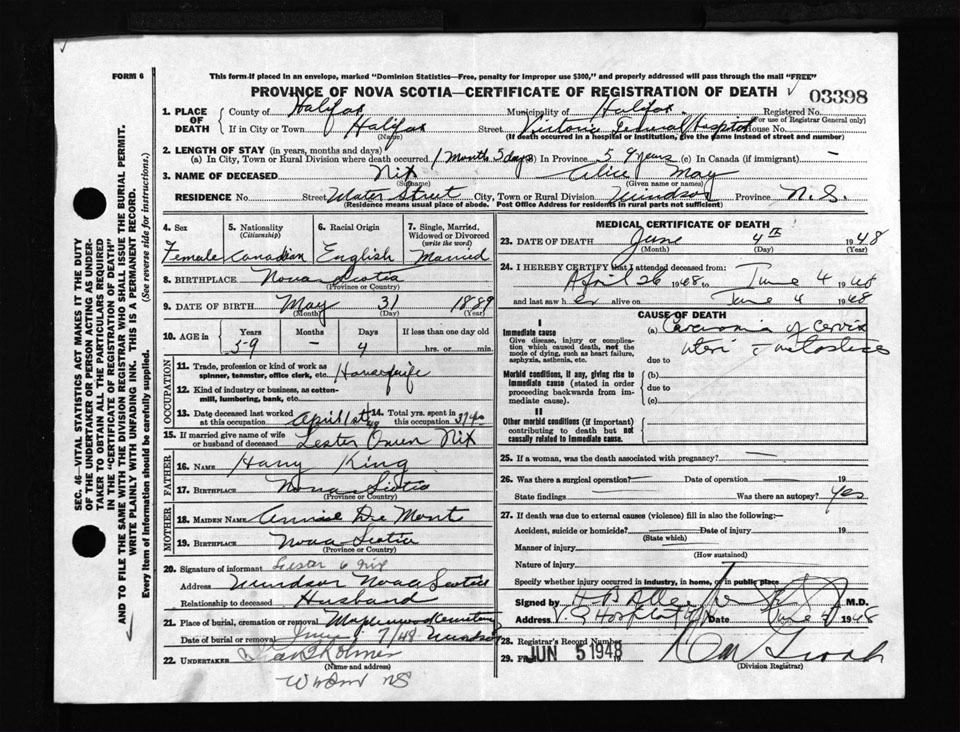 FORM 6
This form if placed in an envelope, marked "Dominion Statistics—Free, penalty for improper use $300," and properly addressed will pass through the mail "FREE"
PROVINCE OF NOVA SCOTIA—CERTIFICATE OF REGISTRATION OF DEATH
03398
SEC. 46—VITAL STATISTICS ACT MAKES IT THE DUTY
OF THE UNDERTAKER OR PERSON ACTING AS UNDER-
TAKER TO OBTAIN ALL THE PARTICULARS REQUIRED
IN THE "CERTIFICATE OF REGISTRATION OF DEATH"
AND TO FILE THE SAME WITH THE DIVISION REGISTRAR WHO SHALL ISSUE THE BURIAL PERMIT.
WRITE PLAINLY WITH UNFADING INK. THIS IS A PERMANENT RECORD.
Every item of Information should be carefully supplied. (See reverse side for instructions.)
1. PLACE OF DEATH County of Halifax Municipality of Halifax Registered No.
(For use of Registrar General only)
If in City or Town Halifax Street Victoria General Hospital House No.
(Name) (If death occurred in a hospital or institution, give the name instead of street and number)
2. LENGTH OF STAY (in years, months and days)
(a) In City, Town or Rural Division where death occurred 1 Month 5 days (b) In Province 59 years (c) In Canada (if immigrant) —
3. NAME OF DECEASED Nix Alice May
(Surname) (Given name or names)
RESIDENCE No. Street Water Street City, Town or Rural Division Windsor Province N.S.
(Residence means usual place of abode. Post Office Address for residents in rural parts not sufficient)
4. Sex 5. Nationality (Citizenship) 6. Racial Origin 7. Single, Married, Widowed or Divorced (write the word)
Female Canadian English Married
8. BIRTHPLACE Nova Scotia
(Province or Country)
9. DATE OF BIRTH May 31 1889
(Month) (Day) (Year)
10. AGE in Years Months Days If less than one day old
59 — 4 hrs. or min.
OCCUPATION
11. Trade, profession or kind of work as spinner, teamster, office clerk, etc. Housewife
12. Kind of industry or business, as cotton-mill, lumbering, bank, etc.
13. Date deceased last worked at this occupation April 1st 48 14. Total yrs. spent in this occupation
15. If married give name of wife or husband of deceased Lester Owen Nix
FATHER
16. NAME Harry King
17. BIRTHPLACE Nova Scotia
(Province or Country)
MOTHER
18. MAIDEN NAME Annie De Mont
19. BIRTHPLACE Nova Scotia
(Province or Country)
20. Signature of informant Lester O Nix
Address Windsor Nova Scotia
Relationship to deceased Husband
21. Place of burial, cremation or removal Maplewood Cemetery
Date of burial or removal June 7/48 Windsor
22. UNDERTAKER Holmes
(Name and address)
Windsor NS
MEDICAL CERTIFICATE OF DEATH
23. DATE OF DEATH June 4th 1948
(Month) (Day) (Year)
24. I HEREBY CERTIFY that I attended deceased from:
April 26 1948 to June 4 1948
and last saw her alive on June 4 1948
CAUSE OF DEATH
I
Immediate cause
Give disease, injury or complication which caused death, not the mode of dying, such as heart failure, asphyxia, asthenia, etc.
(a) Carcinoma of cervix
uteri metastices
due to
Morbid conditions, if any, giving rise to immediate cause (stated in order proceeding backwards from immediate cause).
(b)
due to
(c)
II
Other morbid conditions (if important) contributing to death but not causally related to immediate cause.
25. If a woman, was the death associated with pregnancy? —
26. Was there a surgical operation? — Date of operation — 19
State findings Was there an autopsy? Yes
27. If death was due to external causes (violence) fill in also the following:—
Accident, suicide or homicide? Date of injury 19
(State which)
Manner of injury
(How sustained)
Nature of injury
Specify whether injury occurred in industry, in home, or in public place
Signed by M.D.
Address V.G. Hospital Date June 1948
28. Registrar's Record Number
29. JUN 5 1948
(Division Registrar)